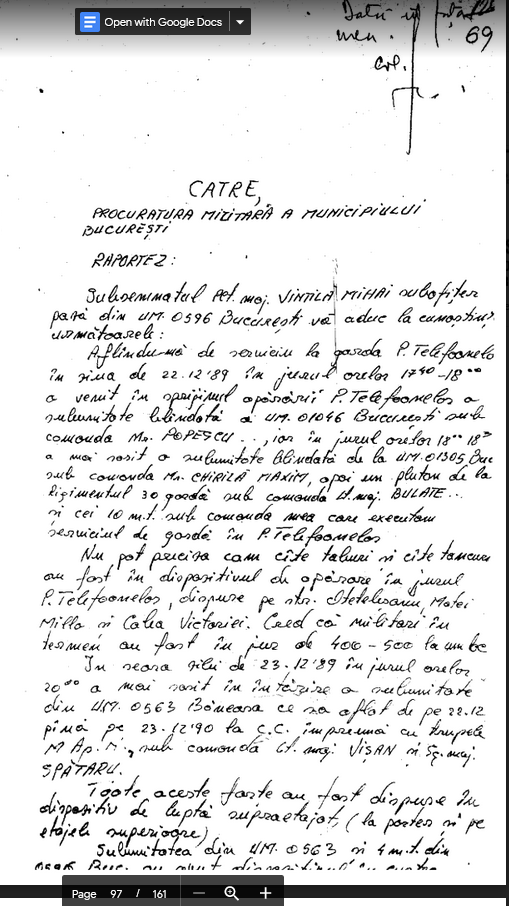 Open with Google Docs
69
CATRE,
PROCURATURA MILITARĂ A MUNICIPIULUI
BUCUREȘTI
RAPORTEZ:
Subsemnatul Plt. maj. VINTILĂ MIHAI subofițer
pază din UM. 0596 București vă aduc la cunoștință
următoarele:
Aflîndu-mă de serviciu la garda P. Telefoanelo
în ziua de 22.12'89 în jurul orelor 17⁴⁰-18⁰⁰
a venit în sprijinul apărării P. Telefoanelor a
subunitate blindată a UM. 01046 București sub
comanda Mr. POPESCU.., iar în jurul orelor 18⁰⁰ 18³⁰
a mai sosit o subunitate blindată de la UM. 01305 Buc
sub comanda Mr. CHIRILĂ MAXIM, apoi un pluton de la
Regimentul 30 gardă sub comanda Lt. maj. BULATE...
și cei 10 m.t. sub comanda mea care executam
serviciul de gardă în P. Telefoanelor
Nu pot preciza cam cîte taburi și cîte tancuri
au fost în dispozitivul de apărare în jurul
P. Telefoanelor, dispuse pe str. Matei
Millo și Calea Victoriei. Cred că militari în
termen au fost în jur de 400-500 la număr
În seara zilei de 23.12'89 în jurul orelor
20⁰⁰ a mai sosit în întărire a subunitate
din UM. 0563 Băneasa ce s-a aflat de pe 22.12
pînă pe 23.12'90 la C.C. împreună cu trupele
M.Ap.N., sub comandă Lt. maj. VIȘAN și Sg. maj.
SPĂTARU.
Toate aceste forțe au fost dispuse în
dispozitiv de luptă supraetajat, (la parter și pe
etajele superioare)
Subunitatea din UM. 0563 și 4 m.t. din
0596 Buc. au avut dispozitivul
Page 97 / 161